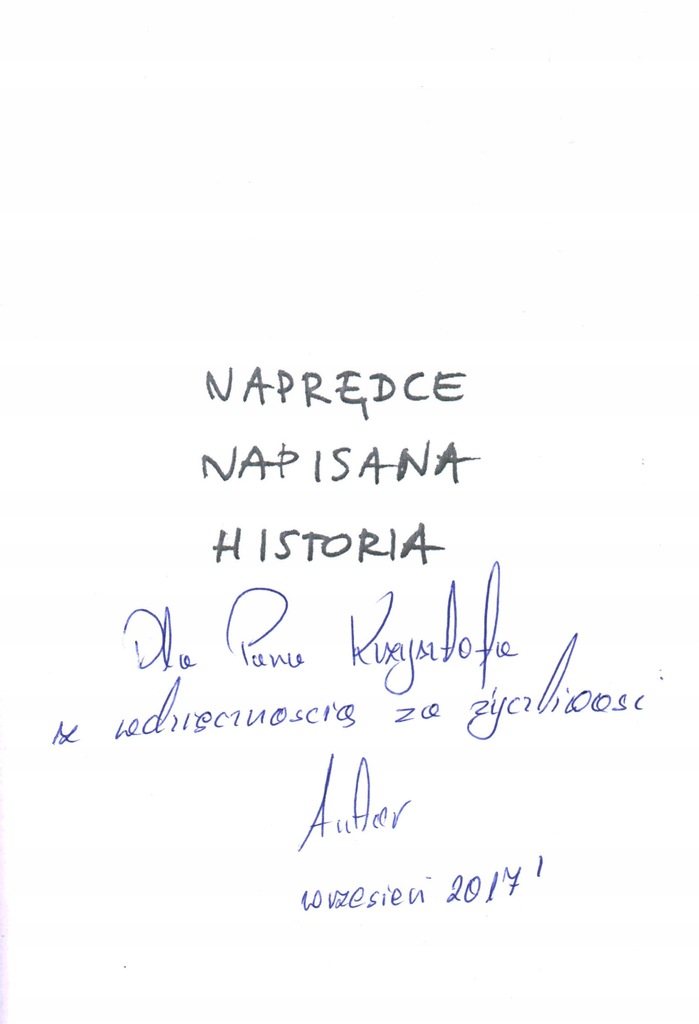 NAPRĘDCE
NAPISANA
HISTORIA
Dla Pana Krzysztofa
z wdzięcznością za życzliwość
Autor
wrzesień 2017'